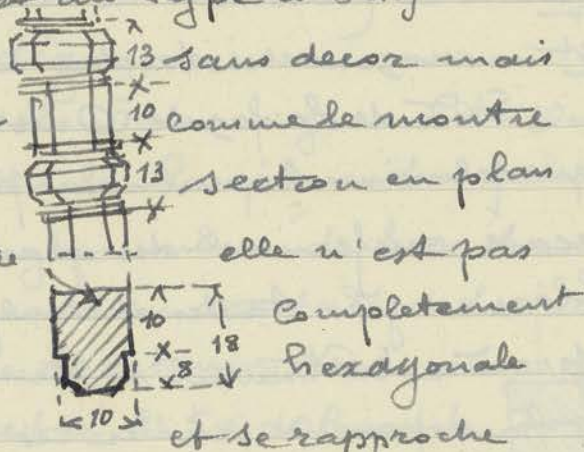 du type à
13 sans decor mais
10 comme le montre
13 section en plan
elle n'est pas
10 completement
18
8 hexagonale
10
et se rapproche